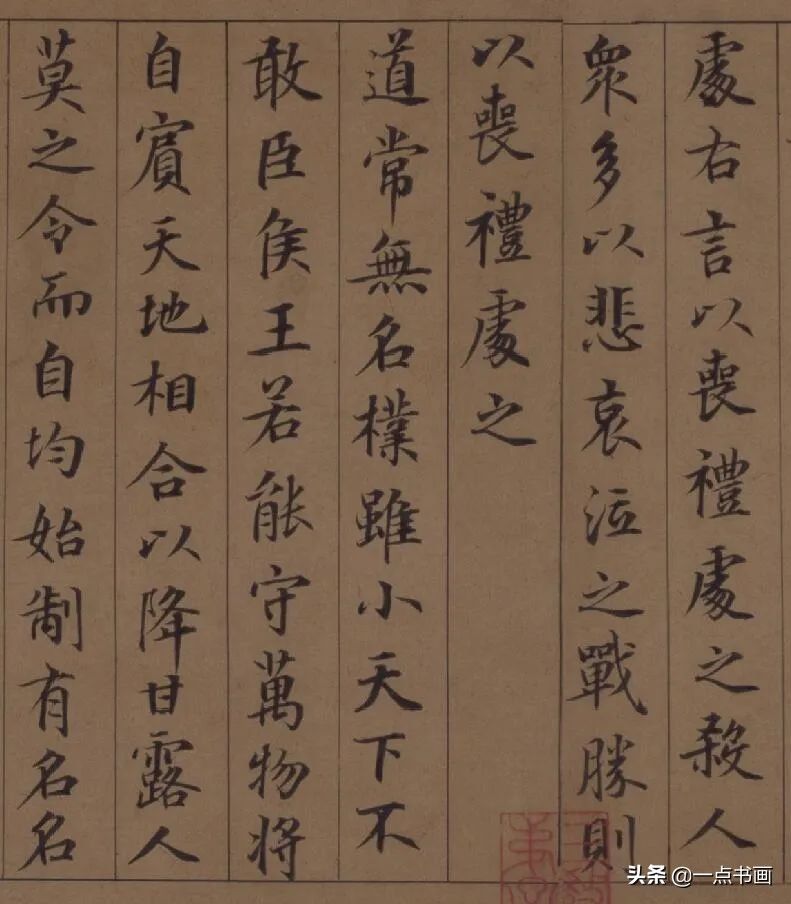 處右言以喪禮處之殺人
衆多以悲哀泣之戰勝則
以喪禮處之
道常無名樸雖小天下不
敢臣侯王若能守萬物将
自賓天地相合以降甘露人
莫之令而自均始制有名名
头条 @一点书画